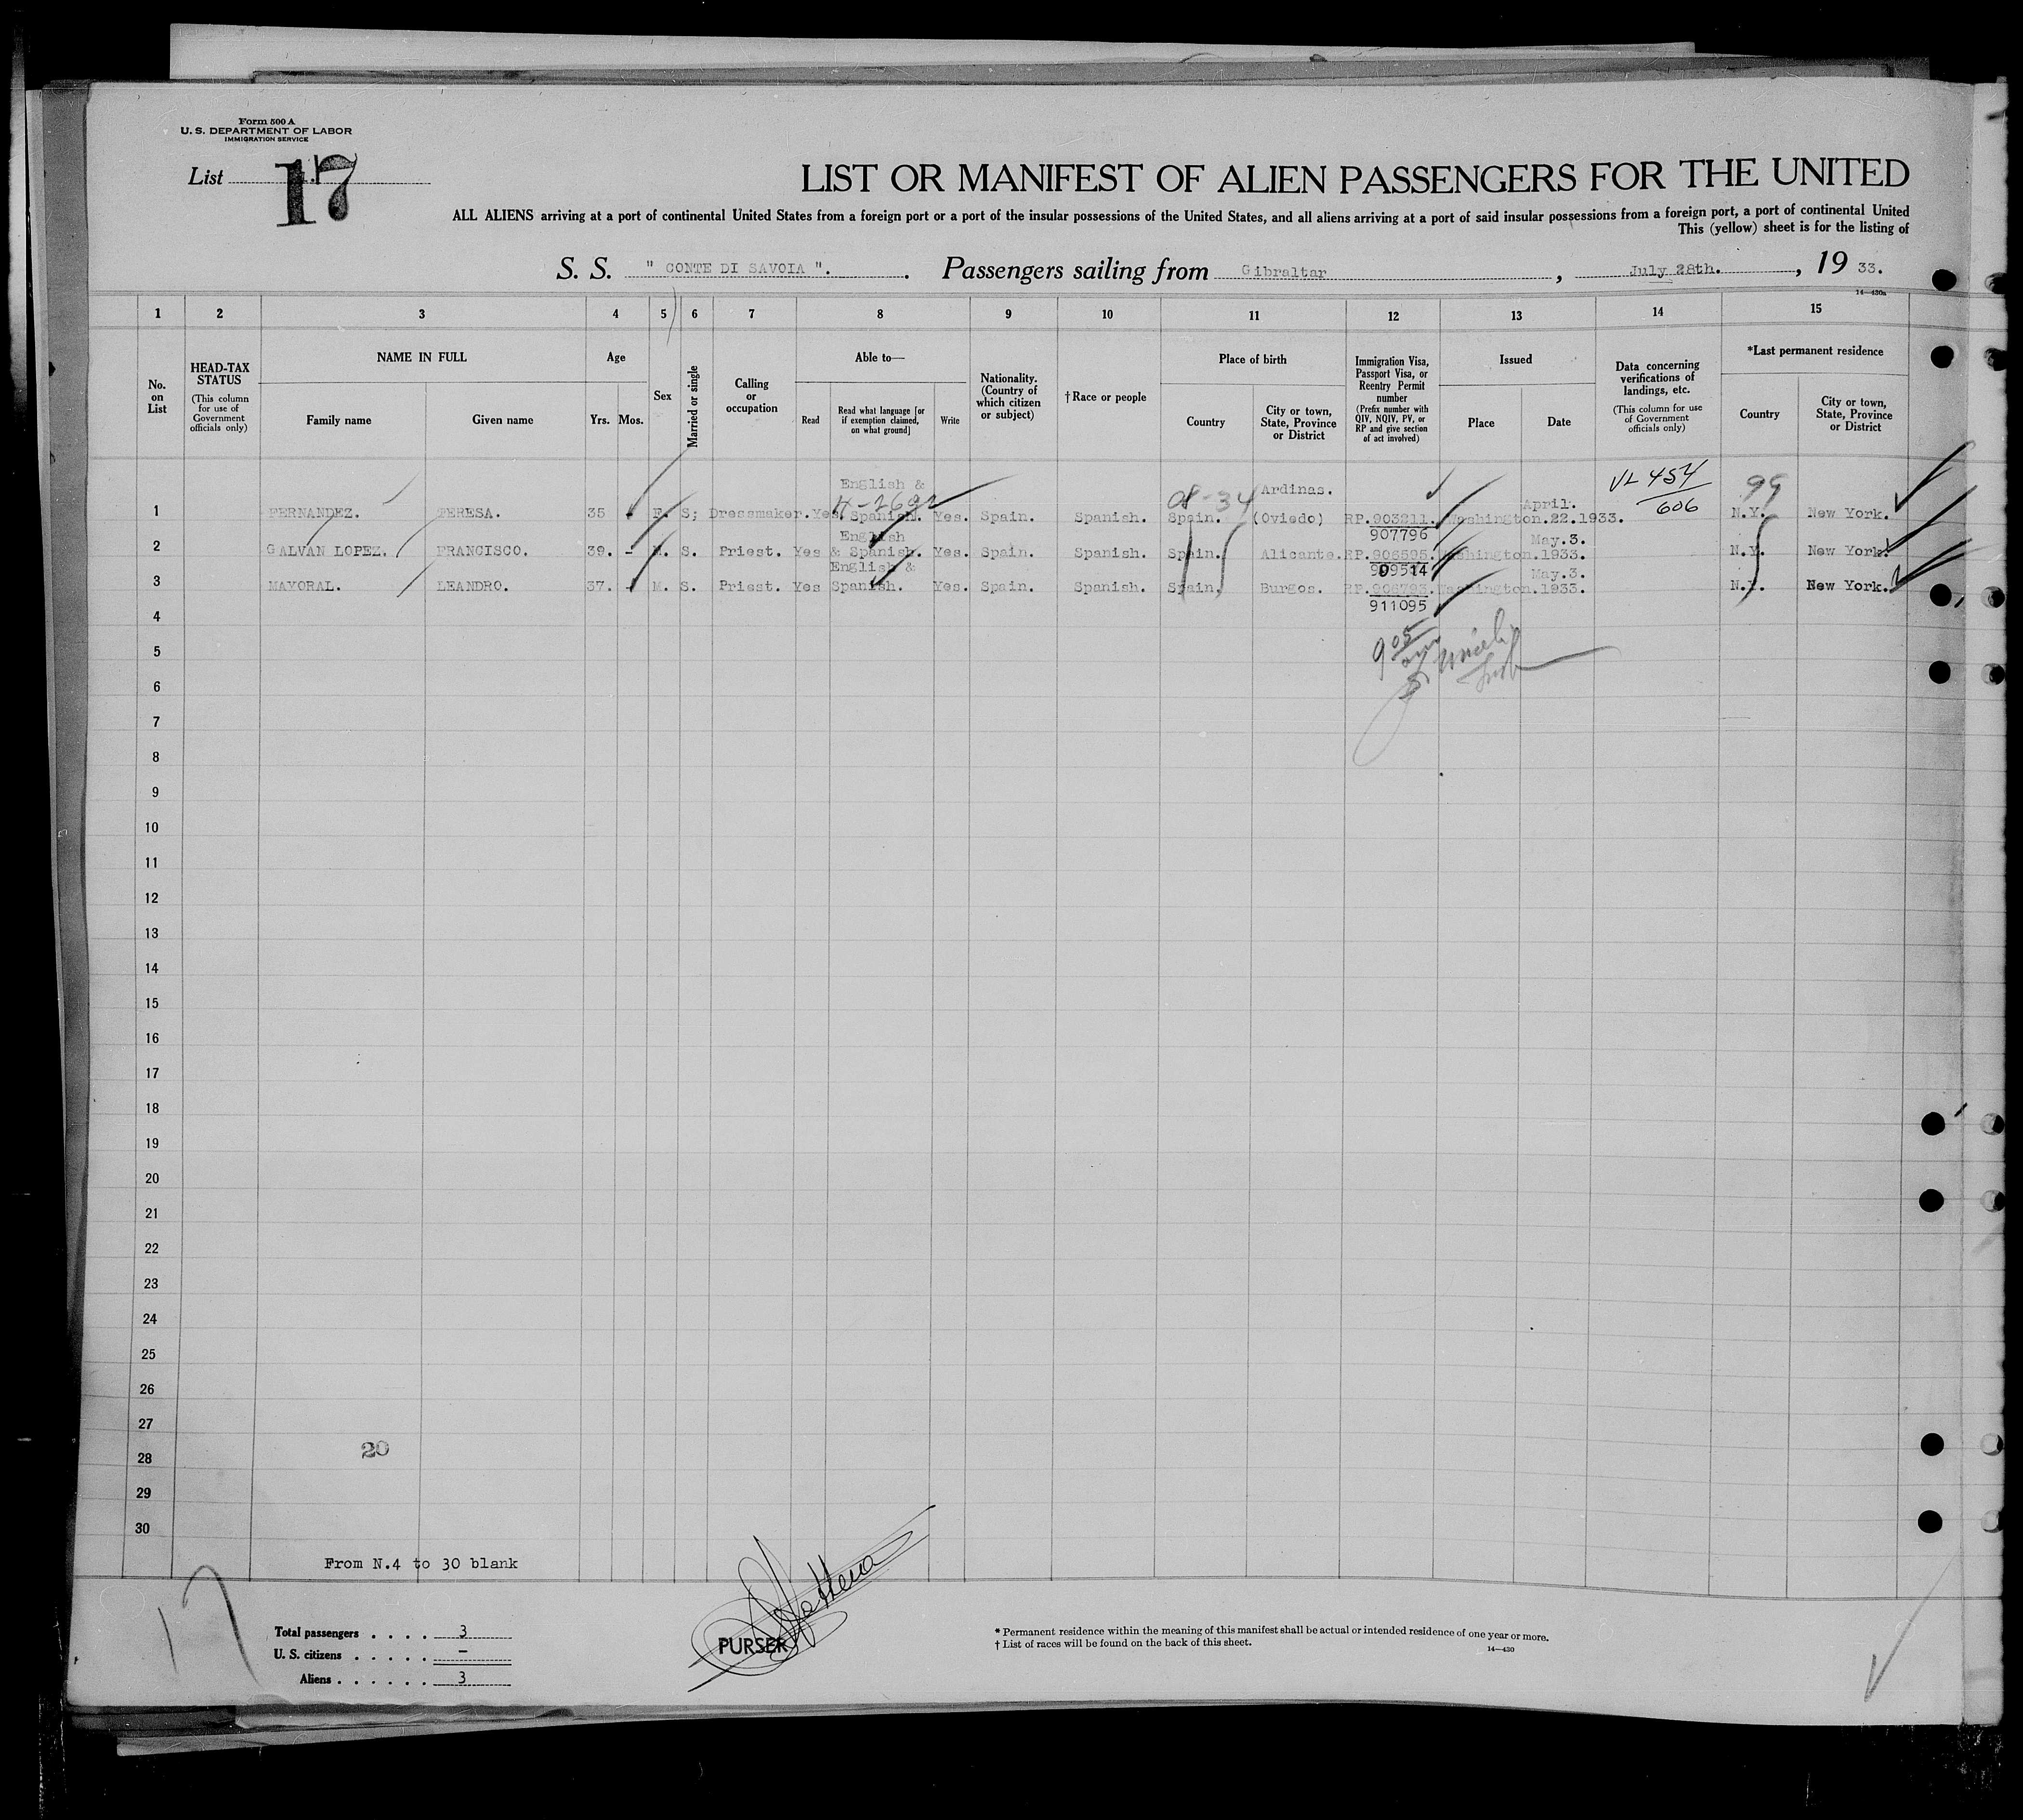 Form 500 A
U. S. DEPARTMENT OF LABOR
IMMIGRATION SERVICE
List 17
LIST OR MANIFEST OF ALIEN PASSENGERS FOR THE UNITED
ALL ALIENS arriving at a port of continental United States from a foreign port or a port of the insular possessions of the United States, and all aliens arriving at a port of said insular possessions from a foreign port, a port of continental United
This (yellow) sheet is for the listing of
S. S. " CONTE DI SAVOIA ". Passengers sailing from Gibraltar, July 28th., 19 33.
14—430a
1 2 3 4 5 6 7 8 9 10 11 12 13 14 15
No. on List
HEAD-TAX STATUS (This column for use of Government officials only)
NAME IN FULL
Family name
Given name
Age
Yrs. Mos.
Sex
Married or single
Calling or occupation
Able to—
Read
Read what language [or if exemption claimed, on what ground]
Write
Nationality. (Country of which citizen or subject)
†Race or people
Place of birth
Country
City or town, State, Province or District
Immigration Visa, Passport Visa, or Reentry Permit number (Prefix number with QIV, NQIV, PV, or RP and give section of act involved)
Issued
Place
Date
Data concerning verifications of landings, etc. (This column for use of Government officials only)
*Last permanent residence
Country
City or town, State, Province or District
English & Ardinas. April. VL 454 99
08-34 606
1 FERNANDEZ. TERESA. 35 F. S; Dressmaker. Yes Spanish. Yes. Spain. Spanish. Spain. (Oviedo) RP.903211. Washington. 22.1933. N.Y. New York.
English 907796 May.3.
2 GALVAN LOPEZ. FRANCISCO. 39. – M. S. Priest. Yes & Spanish. Yes. Spain. Spanish. Spain. Alicante. RP. Washington. 1933. N.Y. New York.
English & 909514 May.3.
3 MAYORAL. LEANDRO. 37. M. S. Priest. Yes Spanish. Yes. Spain. Spanish. Spain. Burgos. RP. Washington. 1933. N.Y. New York.
911095
4
905
5
6
7
8
9
10
11
12
13
14
15
16
17
18
19
20
21
22
23
24
25
26
27
20
28
29
30
From N.4 to 30 blank
17
Total passengers . . . . 3
U. S. citizens . . . . . –
Aliens . . . . . . 3
PURSER
* Permanent residence within the meaning of this manifest shall be actual or intended residence of one year or more.
† List of races will be found on the back of this sheet.
14—430